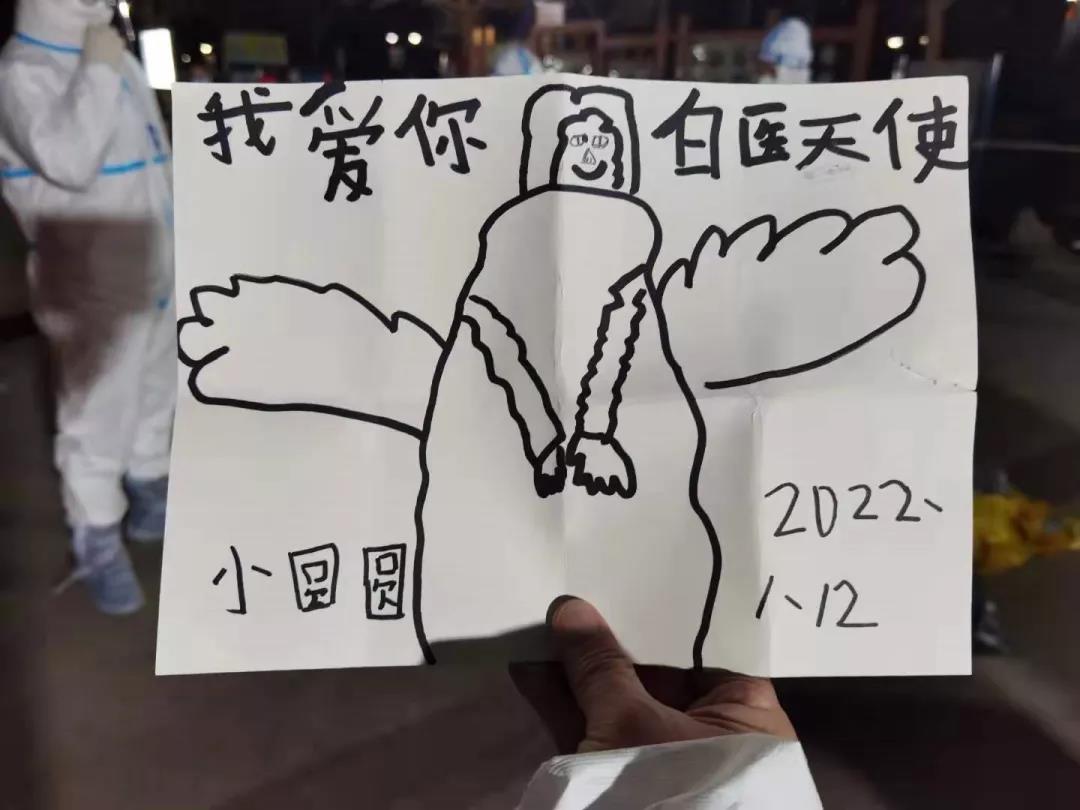 我爱你 白医天使
小圆圆
2022、
1、12